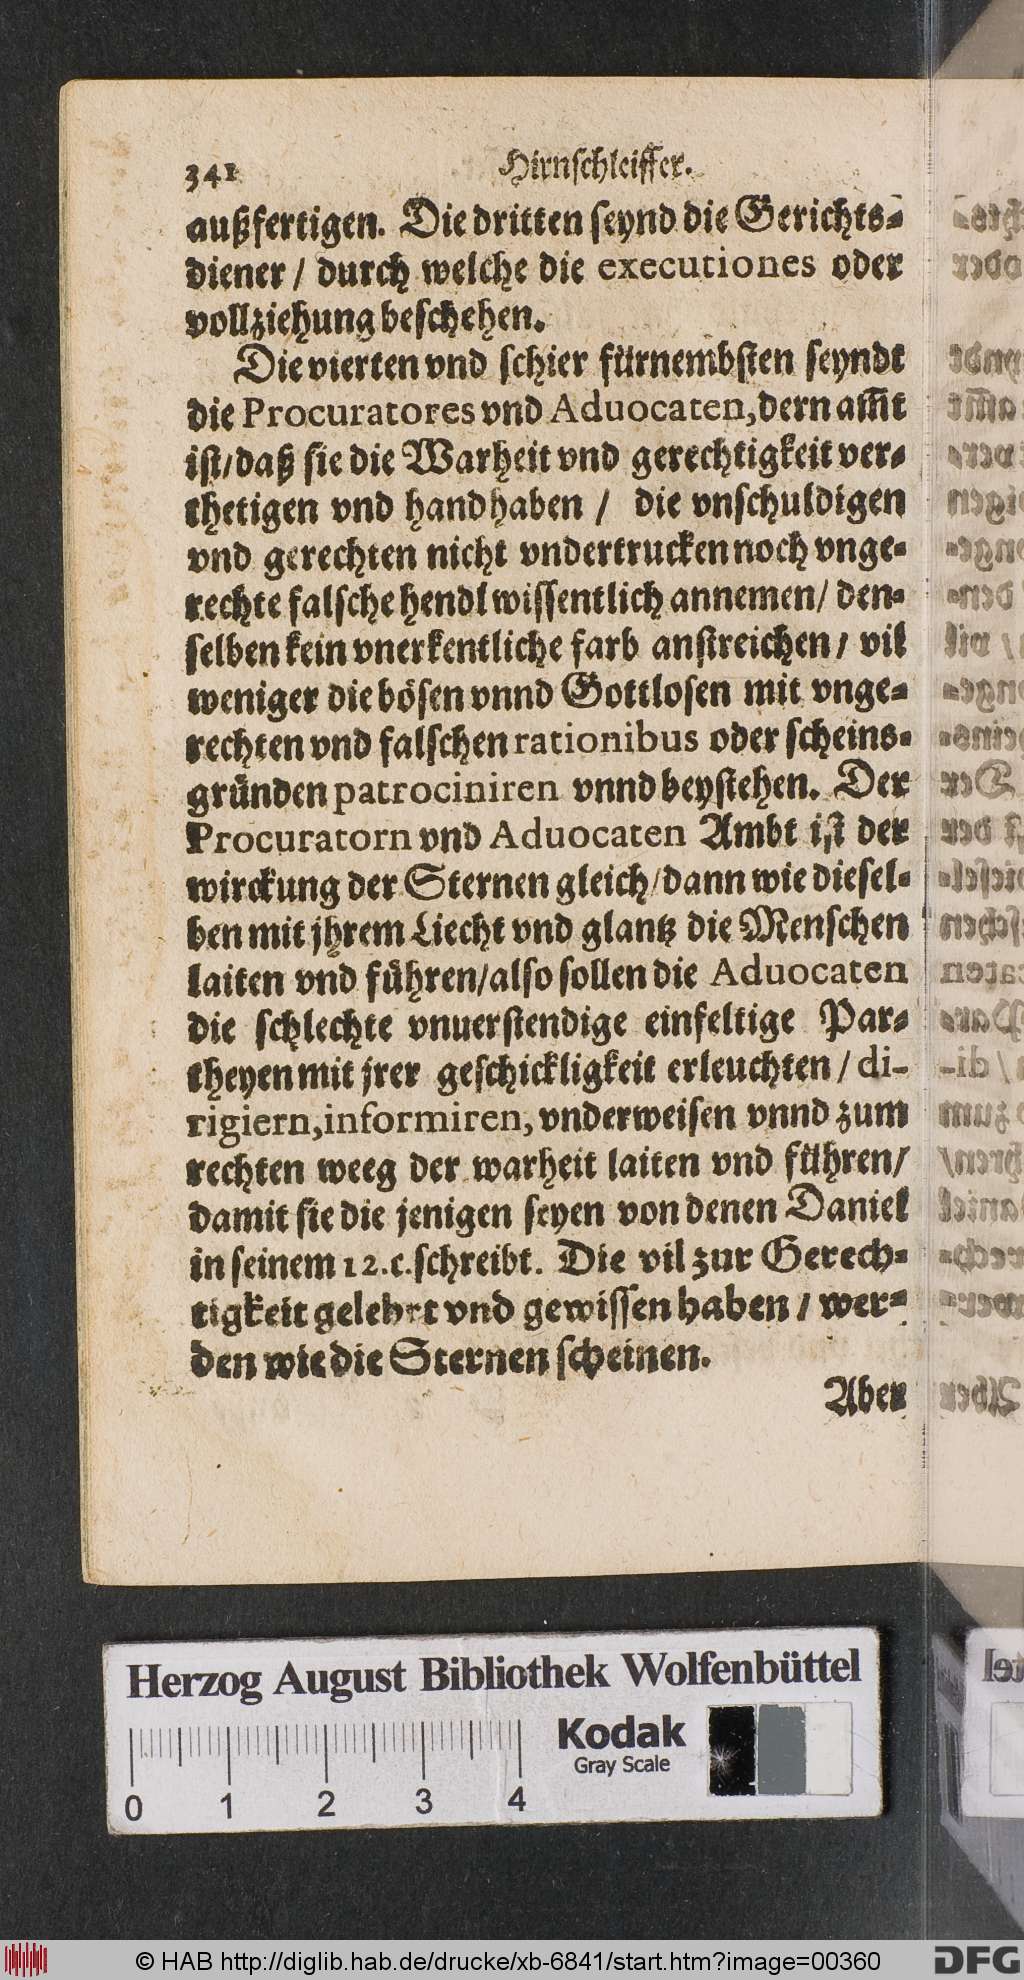 341 Hirnschleiffer.
außfertigen. Die dritten seynd die Gerichts-
diener / durch welche die executiones oder
vollziehung beschehen.
Die vierten vnd schier fürnembsten seyndt
die Procuratores vnd Aduocaten, dern am̃t
ist/daß sie die Warheit vnd gerechtigkeit ver-
thetigen vnd handhaben / die vnschuldigen
vnd gerechten nicht vndertrucken noch vnge-
rechte falsche hendl wissentlich annemen/ den-
selben kein vnerkentliche farb anstreichen / vil
weniger die bösen vnnd Gottlosen mit vnge-
rechten vnd falschen rationibus oder scheins-
gründen patrociniren vnnd beystehen. Der
Procuratorn vnd Aduocaten Ambt ist der
wirckung der Sternen gleich/dann wie diesel-
ben mit jhrem Liecht vnd glantz die Menschen
laiten vnd führen/also sollen die Aduocaten
die schlechte vnuerstendige einfeltige Par-
theyen mit jrer geschickligkeit erleuchten / di-
rigiern, informiren, vnderweisen vnnd zum
rechten weeg der warheit laiten vnd führen/
damit sie die jenigen seyen von denen Daniel
in seinem 12.c. schreibt. Die vil zur Gerech-
tigkeit gelehrt vnd gewissen haben / wer-
den wie die Sternen scheinen.
Aber
Herzog August Bibliothek Wolfenbüttel
Kodak
Gray Scale
0 1 2 3 4
© HAB http://diglib.hab.de/drucke/xb-6841/start.htm?image=00360
DFG